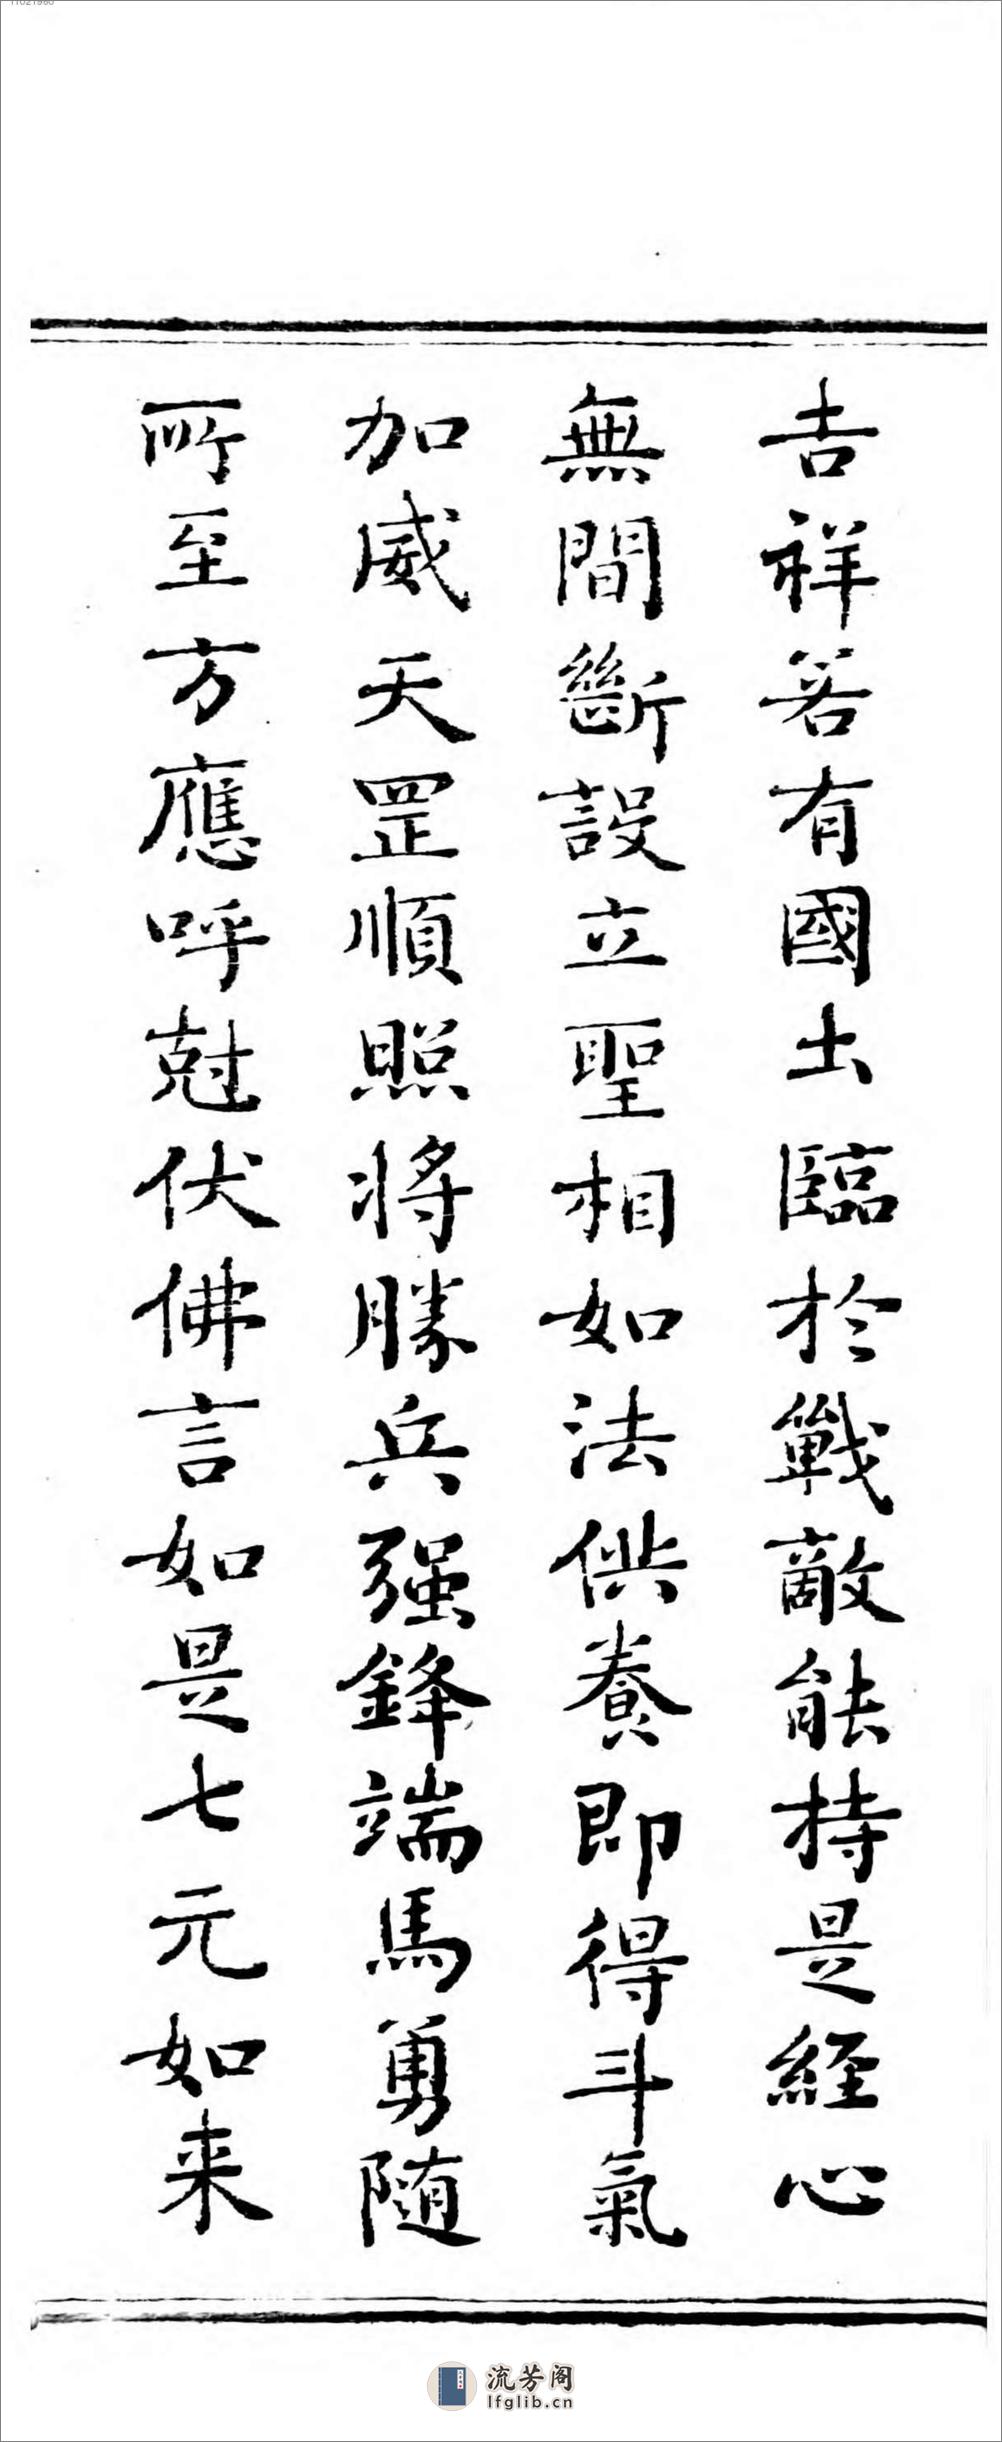 吉祥若有國土臨於戰敵能持是經心
無間斷設立聖相如法供養即得斗氣
加威天罡順照將勝兵强鋒端馬勇随
所至方應呼尅伏佛言如是七元如来
流芳阁
lfglib.cn